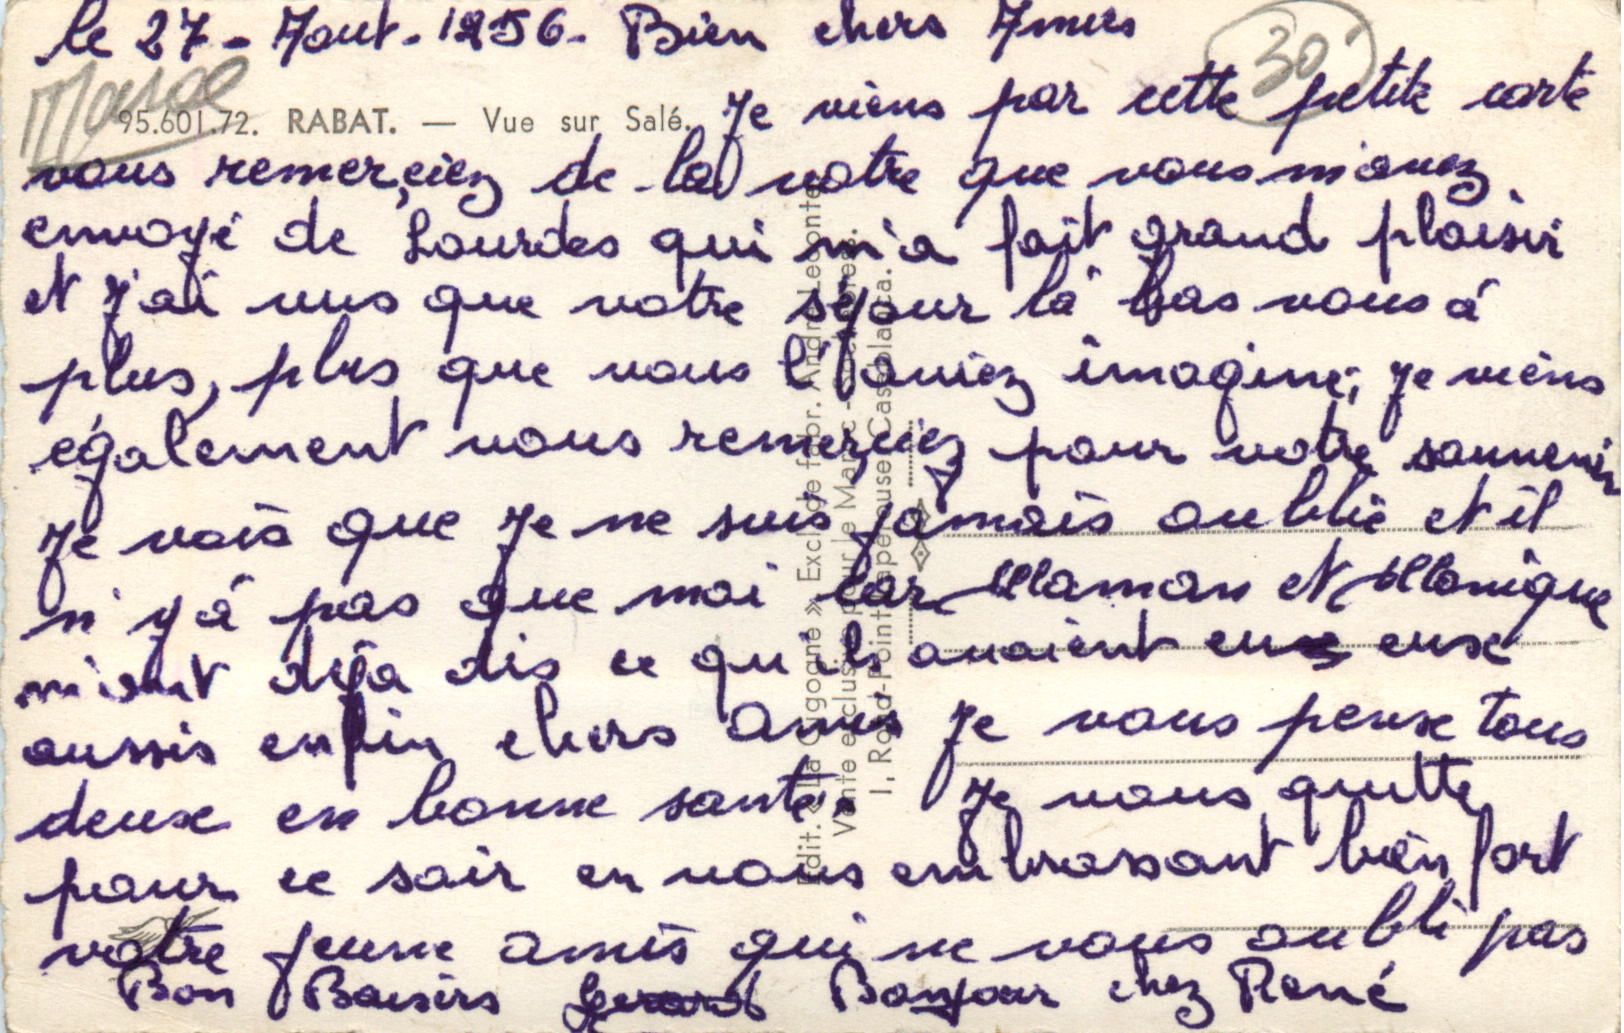 le 27 - Aout - 1956 - Bien chers Amis
Maroc
30
95.601.72. RABAT. — Vue sur Salé.
Je viens par cette petite carte
vous remerçiez de la votre que vous m'avez
envoyé de Lourdes qui m'a fait grand plaisir
et j'ai vus que votre séjour là bas vous à
plus, plus que vous l'aviez imaginé; je viens
également vous remerciez pour votre souvenir
Je vois que je ne suis jamais oublié et il
n'y à pas que moi car Maman et Monique
m'ont déja dis ce qu'ils avaient eus eux
aussis enfin chers Amis je vous pense tous
deux en bonne santé. Je vous quitte
pour ce soir en vous embrassant bien fort
votre jeune amis qui ne vous oubli pas
Bon Baisers Gerard Bonjour chez René
Edit. « La Cigogne » Excl. de fabr. André Leconte
Vente exclusive pour le Maroc -
1, Rond-Point Lapeyrouse, Casablanca.